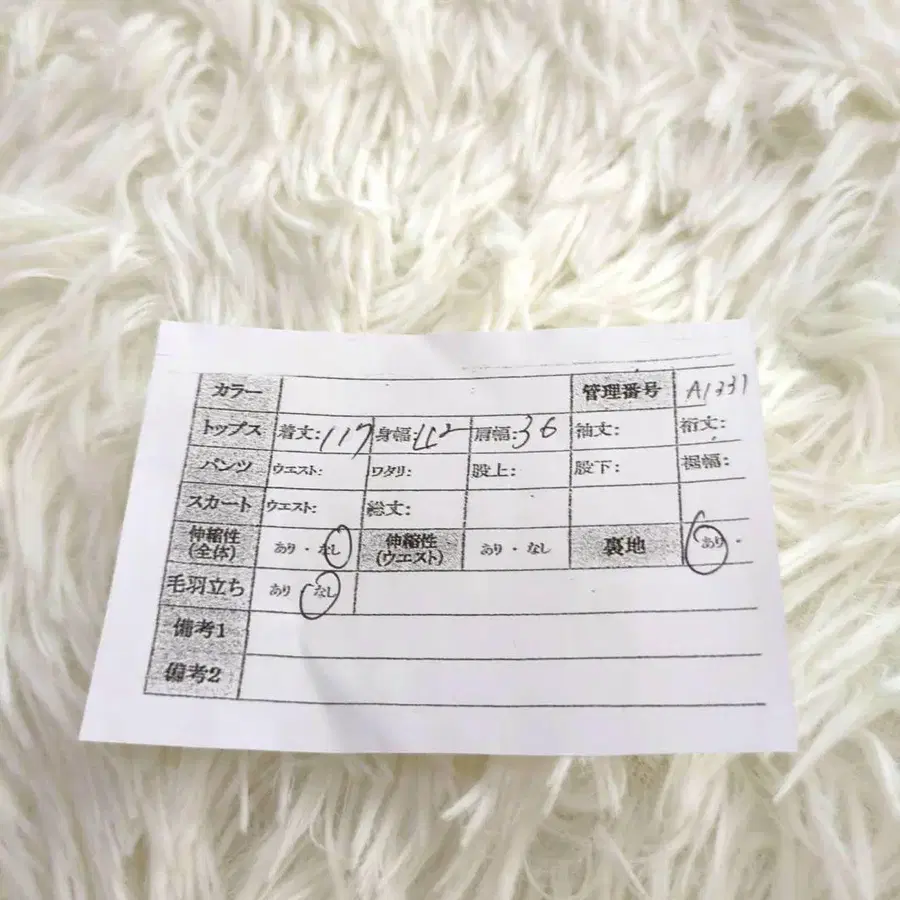 カラー 管理番号 A1331
トップス 着丈:117 身幅:42 肩幅:36 袖丈: 裄丈:
パンツ ウエスト: ワタリ: 股上: 股下: 裾幅:
スカート ウエスト: 総丈:
伸縮性(全体) あり・なし 伸縮性(ウエスト) あり・なし 裏地 あり・
毛羽立ち あり なし
備考1
備考2